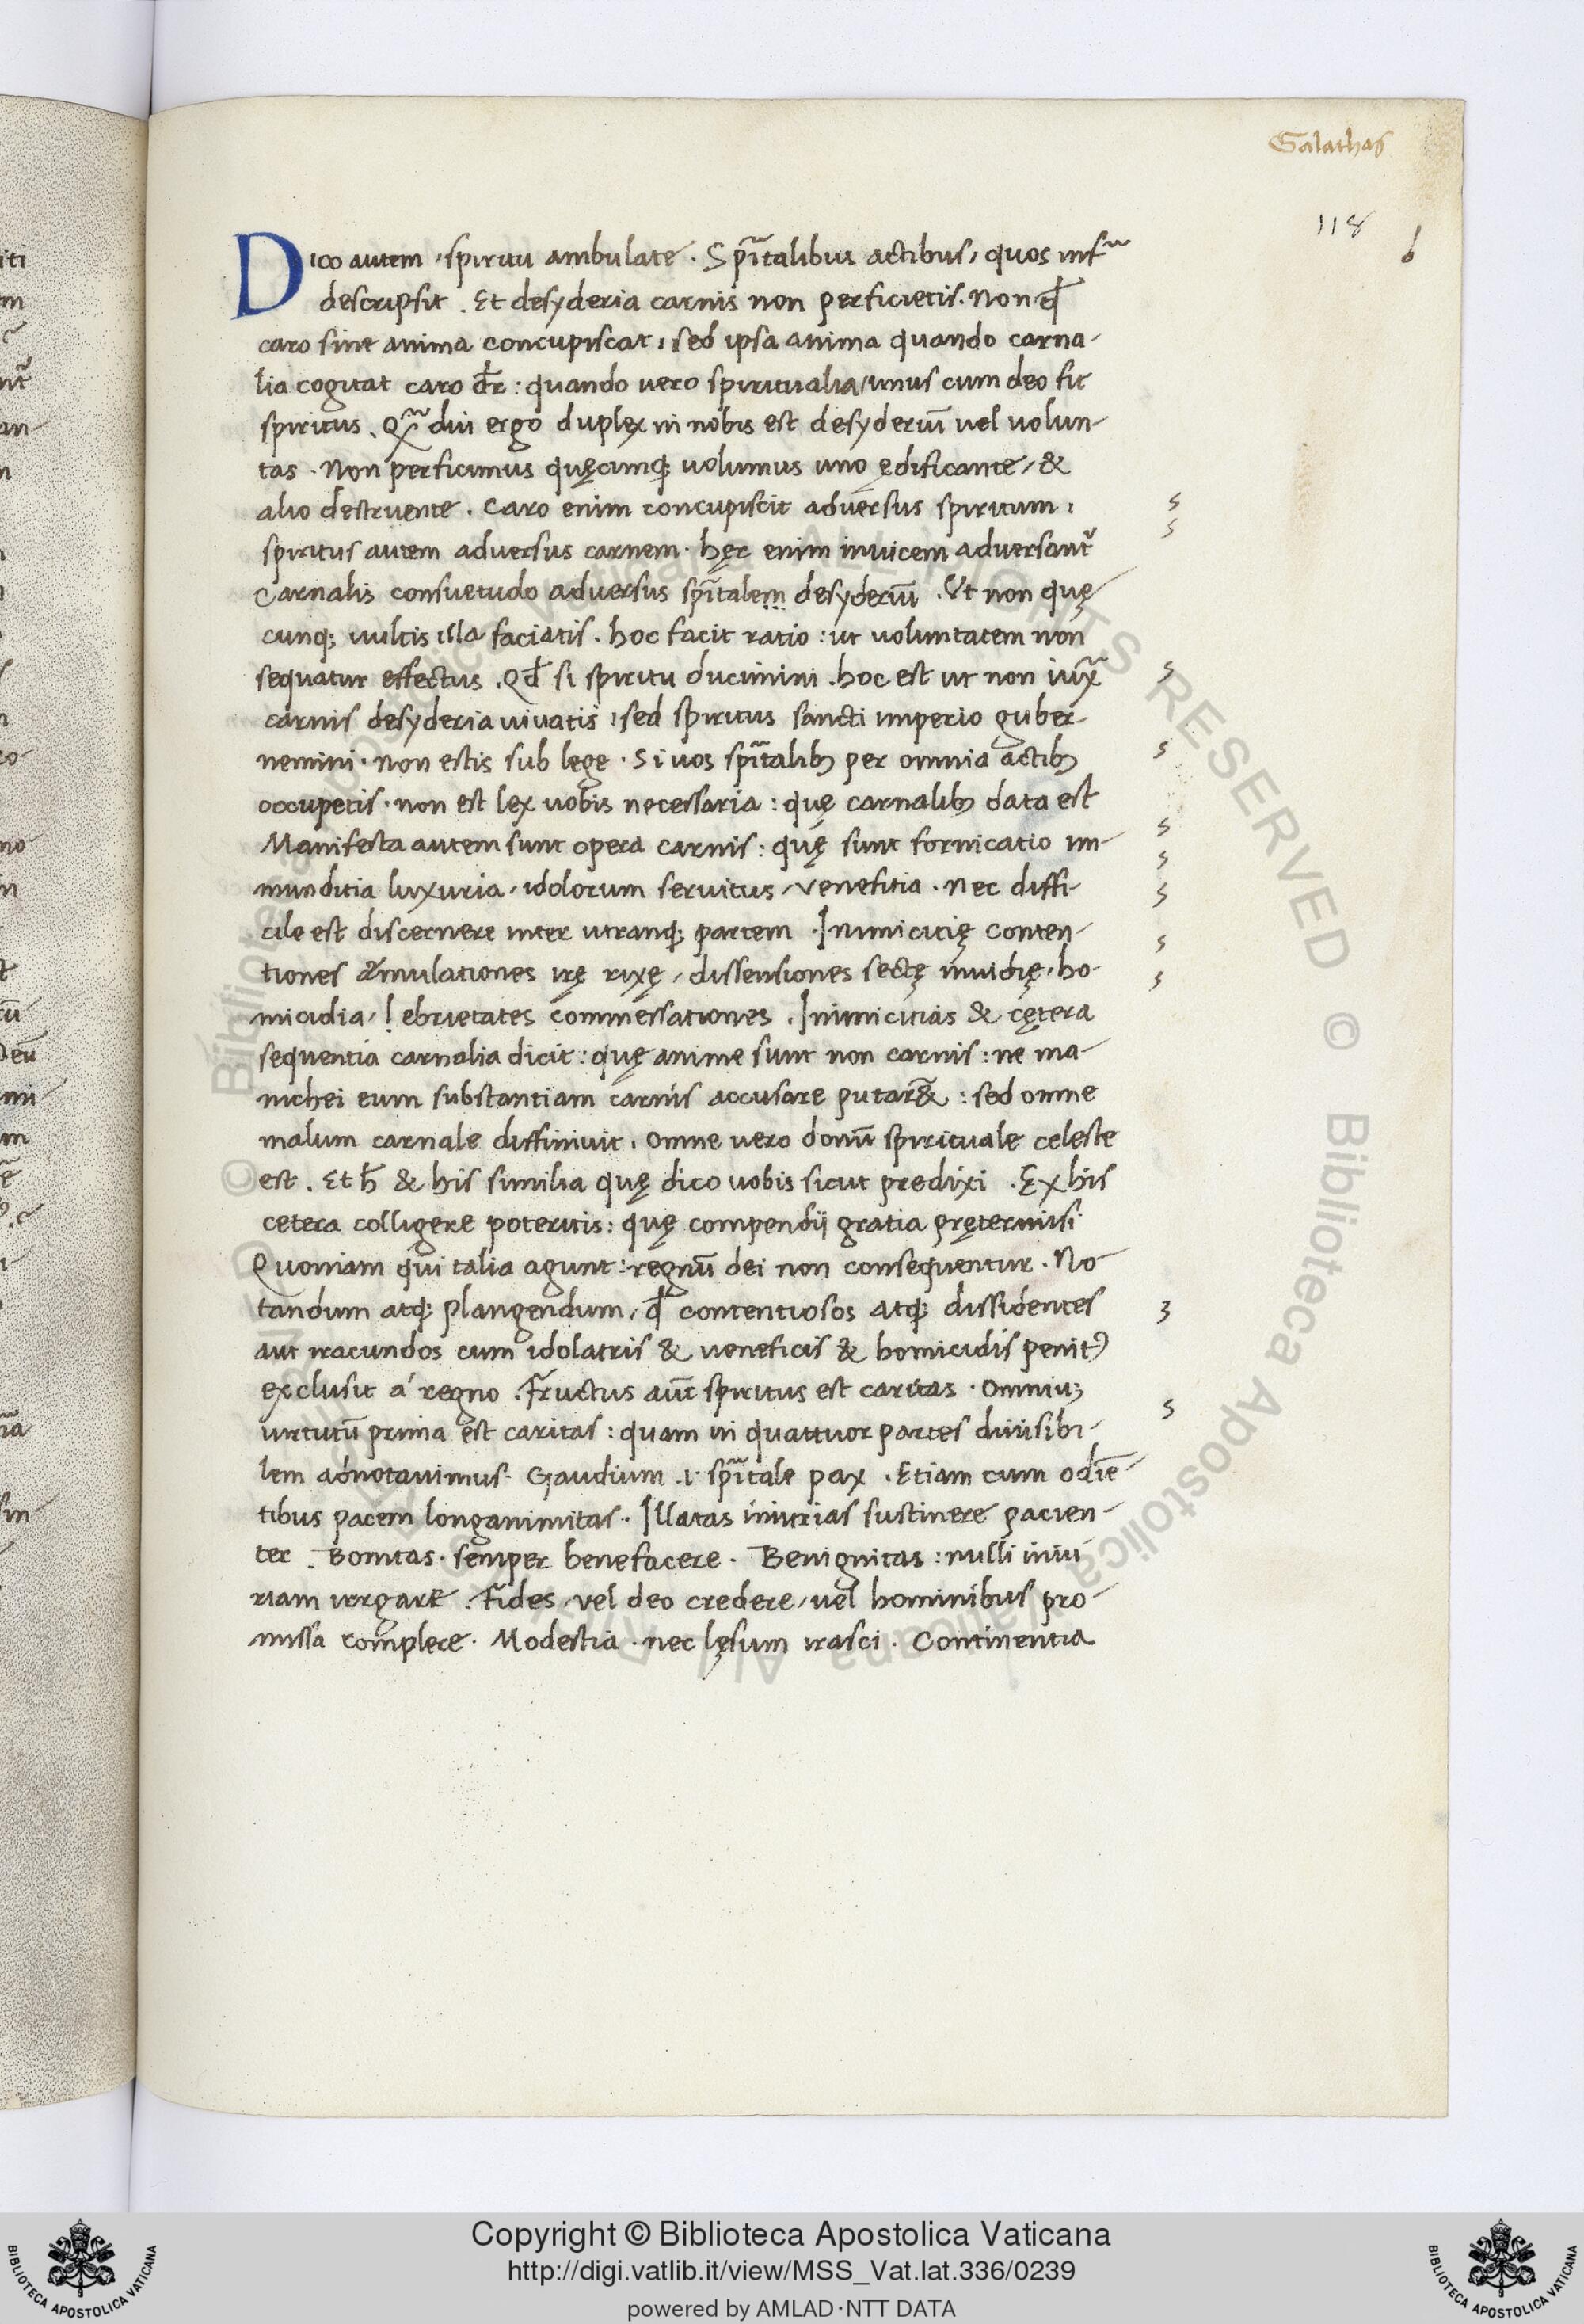 Galathas
118
Dico autem, spiritu ambulate. Sp̃italibus actibus, quos infᵃ
descripsit. Et desyderia carnis non perficietis. Non qđ
caro sine anima concupiscat, sed ipsa anima quando carna-
lia cogitat caro đr: quando vero spiritualia, unus cum deo fit
spiritus. Qᵃ diu ergo duplex in nobis est desyderiũ vel volun-
tas. Non perficimus quęcunq; volumus uno ędificante, &
alio destruente. Caro enim concupiscit adversus spiritum,
spiritus autem adversus carnem. hęc enim invicem adversant᷑
Carnalis consuetudo adversus sp̃italem desyderiũ. Ut non quę
cunq; vultis illa faciatis. hoc facit ratio: ut voluntatem non
sequatur effectus. Qđ si spiritu ducimini. hoc est ut non iuxᵃ
carnis desyderia vivatis, sed spiritus sancti imperio guber-
nemini. non estis sub lege. Si vos sp̃italib; per omnia actib;
occupetis. non est lex vobis necessaria: quę carnalib; data est
Manifesta autem sunt opera carnis: quę sunt fornicatio im-
munditia luxuria, idolorum servitus, venefitia. Nec diffi-
cile est discernere inter utranq; partem. Inimicitię conten-
tiones æmulationes irę rixę, dissensiones sectę invidię, ho-
micidia, ebrietates commessationes. Inimicitias & cętera
sequentia carnalia dicit: quę anime sunt non carnis: ne ma-
nichei eum substantiam carnis accusare putar&̃: sed omne
malum carnale diffinivit. omne vero donũ spirituale celeste
est. Et h̄ & his similia quę dico vobis sicut predixi. Ex his
cetera colligere poteritis: quę compendij gratia pręternusi
Quoniam qui talia agunt: regnũ dei non consequentur. No
tandum atq; plangendum, qđ contentiosos atq; dissidentes
aut iracundos cum idolatris & veneficis & homicidis penit᷒
exclusit á regno. Fructus aũt spiritus est caritas. Omniuꝫ
virtutũ prima est caritas: quam in quattuor partes divisibi-
lem adnotavimus. Gaudium .i. sp̃itale pax. Etiam cum odiẽ-
tibus pacem longanimitas. Illatas iniurias sustinere pacien-
ter. Bonitas. semper benefacere. Benignitas: nulli iniu
riam irrgare. Fides, vel deo credere, vel hominibus pro-
missa complere. Modestia. nec lęsum irasci. Continentia
© Biblioteca Apostolica Vaticana ALL RIGHTS RESERVED
Copyright © Biblioteca Apostolica Vaticana
http://digi.vatlib.it/view/MSS_Vat.lat.336/0239
powered by AMLAD·NTT DATA
BIBLIOTECA APOSTOLICA VATICANA
BIBLIOTECA APOSTOLICA VATICANA